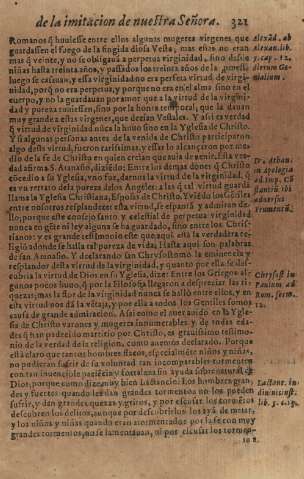 de la imitacion de nuestra Señora. 321
Romanos q̃ huuiesse entre ellos algunas mugeres virgenes que
guardassen el fuego de la fingida diosa Vesta, mas estas no eran
mas q̃ veinte, y no se obligauã a perpetua virginidad, sino desde
niñas hasta treinta años, y passados los treinta años de la
luego se casauan, y essa virginidad no era perfeta virtud de virgini-
dad, porq̃ no era perpetua, y porque no era en el alma sino en el
cuerpo, y no la guardauan por amor que a la virtud de la virgini-
dad y pureza tuuiessen, sino por la honra temporal, que la dauan
muy grande a estas virgenes, que dezian Vestales. Y assi es verdad
q̃ virtud de virginidad nũca la huuo sino en la Yglesia de Christo.
Y si algunas personas antes de la venida de Christo participaron
algo desta virtud, fueron rarissimas, y essas lo alcançaron por me-
dio de la fe de Christo en quien creian que auia de venir. Esta ver-
dad afirma S. Atanasio, diziẽdo: Entre los demas dones q̃ Christo
cõcedio a su Yglesia, vno fue, darnos la virtud de la virginidad, q̃
es vn retrato de la pureza de los Angeles: a las q̃ tal virtud guardã
llama la Yglesia Christiana, Esposas de Christo. Y viẽdo los Gẽtiles
entre nosotros resplandecer esta virtud, se espantã y admiran de-
llo, porque este consejo santo y celestial de perpetua virginidad
nunca en gẽte ni ley alguna se ha guardado, sino entre los Chris-
tianos: y es grande testimonio este de que aquesta es la verdadera re-
ligiõ adonde se halla tal pureza de vida. Hasta aqui son palabras
de san Atanasio. Y declarando san Chrysostomo la eminencia y
resplandor desta virtud de la virginidad, y quanto por ella se des-
cubria la virtud de Dios en su Yglesia, dize: Entre los Griegos al-
gunos pocos huuo, q̃ por la Filosofia llegaron a despreciar las ri-
quezas; mas la flor de la virginidad nunca se hallò entre ellos, y en
esta virtud nos dã la vẽtaja, y por ella a todos los Gentiles somos
causa de grande admiracion. Assi como el auer auido en la Ygle-
sia de Christo varones y mugeres innumerables y de todas eda-
des q̃ han padecido martirio por Christo, es grauissimo testimo-
nio de la verdad de la religion, como auemos declarado. Porque
està claro que tantos hombres flacos, especialmẽte niños y niñas,
no pudieran sufrir de su voluntad tan incomparables tormentos
con tan inuencible paciencia y fortaleza sin ayuda sobrenatural de
Dios, porque como dize muy bien Lactancio: Los hombres gran-
des y fuertes quando les dan grandes tormentos no los pueden
sufrir, y dan grandes quexas y gritos, y por escusar los tormẽtos
descubren los delitos, aunque por descubrirlos los ayã de matar,
y los niños y niñas quando eran atormentados por la fe con muy
grandes tormentos, no se lamentauan, ni por escusar los tormen-
tos
alexãd. ab
Alexan. lib.
Dr. Athan.
in apologia
ad imp. Cõ
stantiũ ibi
aduersus
Frumentiũ.
Chrysost in
Rom. serm.
Lactanc. in
lib. 5. c. 13.